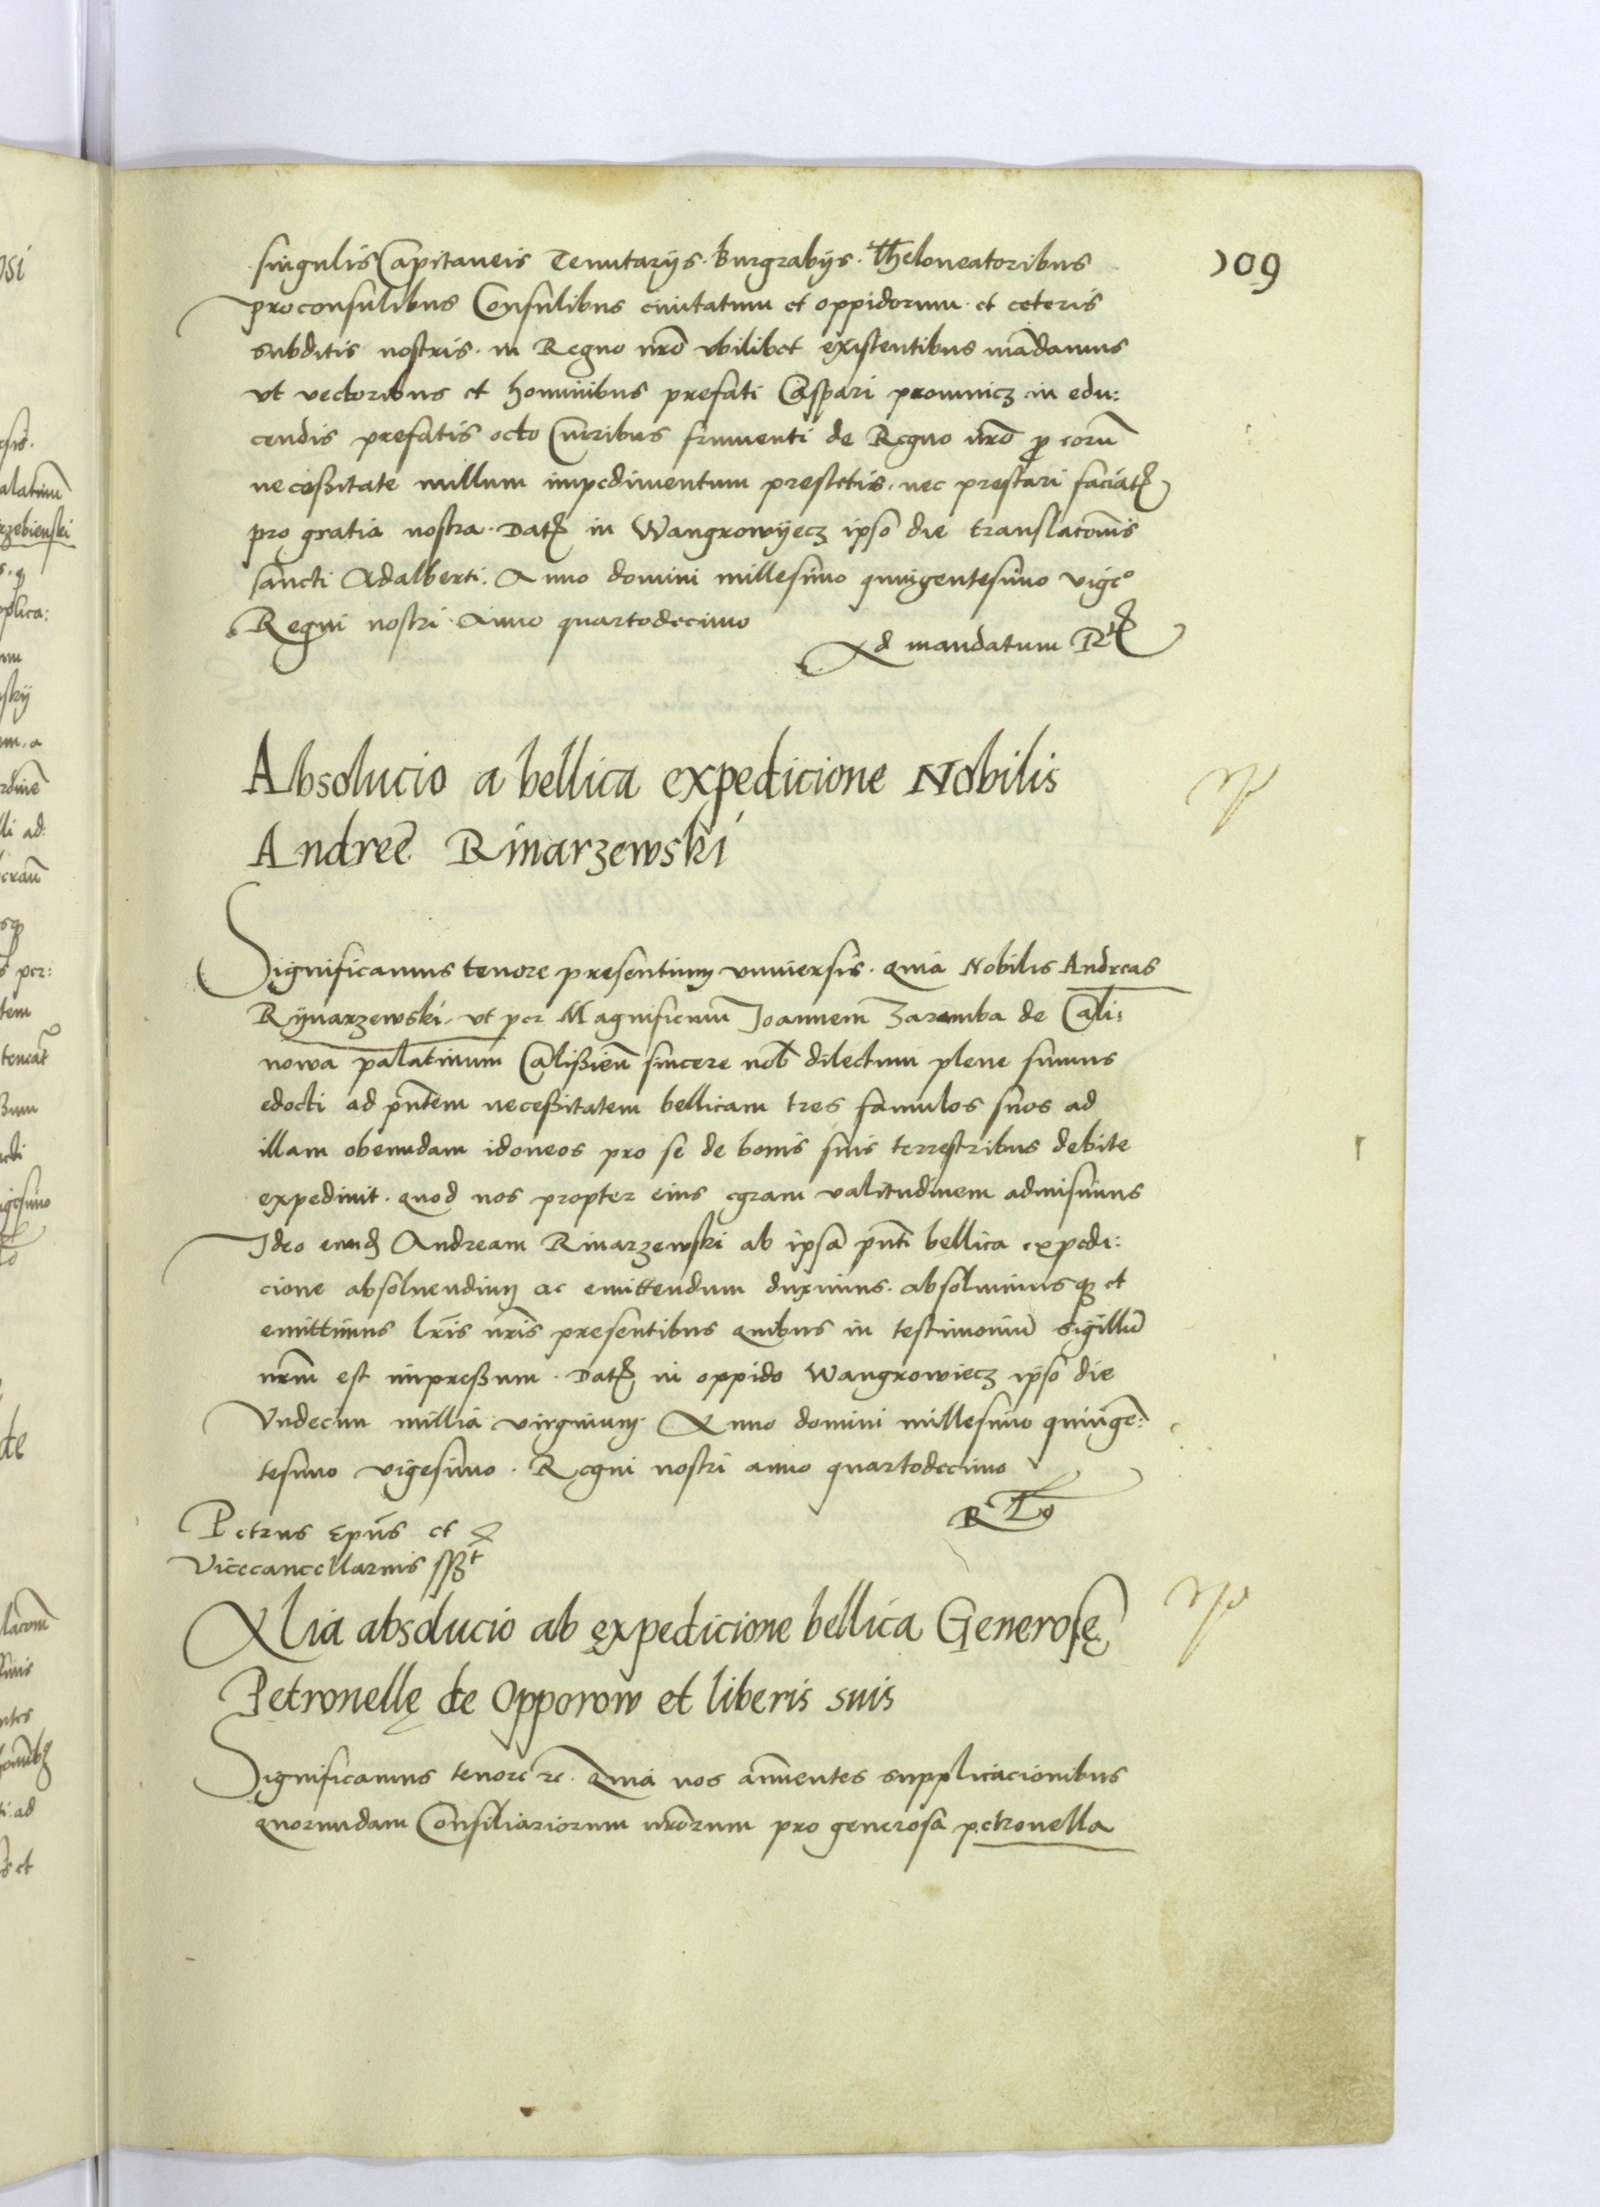 109
singulis Capitaneis Tenutarijs. Burgrabijs. Theloneatoribus
proconsulibus Consulibus civitatum et oppidorum. et ceteris
subditis nostris. in Regno nr̃o vbilibet existentibus mãdamus
vt vectoribus et hominibus prefati Caspari promnicz in edu:
cendis prefatis octo Curribus frumenti de Regno nr̃o ꝓ eorũ
necessitate nullum impedimentum prestetis. nec prestari faciatꝭ
pro gratia nostra. Datꝭ in Wangrowyecz ipso die translacõnis
sancti Adalberti. Anno domini millesimo quingentesimo vigeº
Regni nostri Anno quartodecimo
Ad mandatum R
Absolucio a bellica expedicione Nobilis
Andreę Rinarzewski
Significamus tenore presentium vniversis. quia Nobilis Andreas
Rynarzewski. vt per Magnificum Joannem Zaramba de Cali:
nowa palatinum Calissieñ sincere nob̃ dilectum plene sumus
edocti ad pñtem necessitatem bellicam tres famulos suos ad
illam obeundam idoneos pro se de bonis suis terrestribus debite
expedivit. quod nos propter eius egram valitudinem admisimus
Ideo eundꝭ Andream Rinarzewski ab ipsa pñti bellica expedi:
cione absoluendum ac emittendum duximus. absoluimusqꝫ et
emittimus l̃ris nr̃is presentibus quibus in testimoniũ sigillũ
nr̃m est impressum. Datꝭ in oppido Wangrowiecz ipso die
Vndecim millia virginum. Anno domini millesimo quingẽ:
tesimo vigesimo. Regni nostri anno quartodecimo
Petrus Ep̃us et
Vicecancellarius ssᵗ
Alia absolucio ab expedicione bellica Generosę
Petronellę de Opporow et liberis suis
Significamus tenore ꝛc. Quia nos annuentes supplicacionibus
quorundam Consiliariorum nr̃orum pro generosa petronella